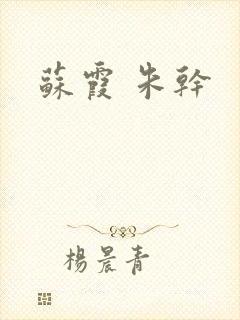 蘇霞 朱幹
楊晨青